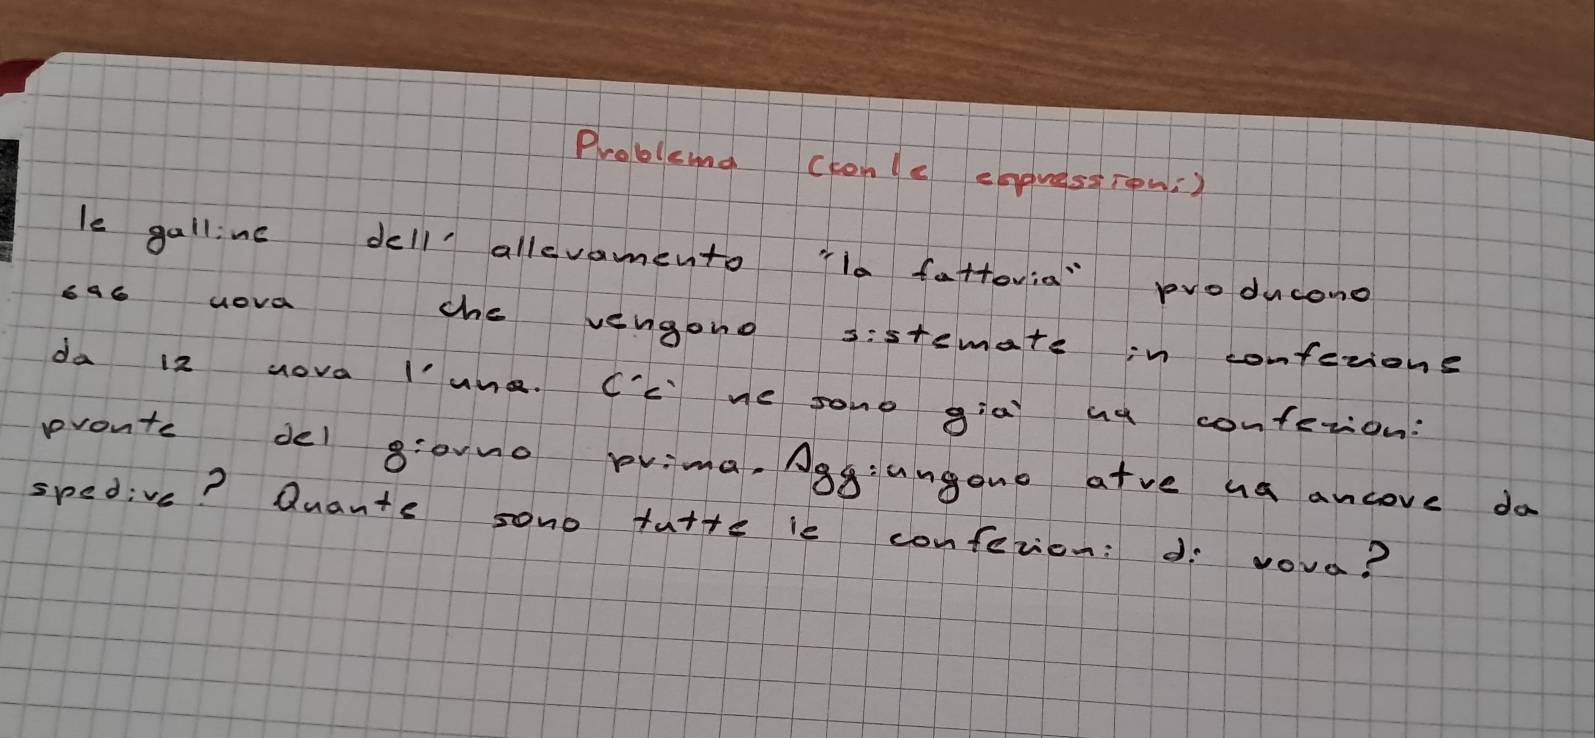 Problema (con le espressioni)
le galline dell' allevamento "la fattoria" producono
696 uova che vengono sistemate in confezione
da 12 uova l'una. C'è ne sono già 44 confezioni
pronte del giorno prima. Aggiungono atre 49 ancore da
spedire? Quante sono tutte le confezioni di uova?